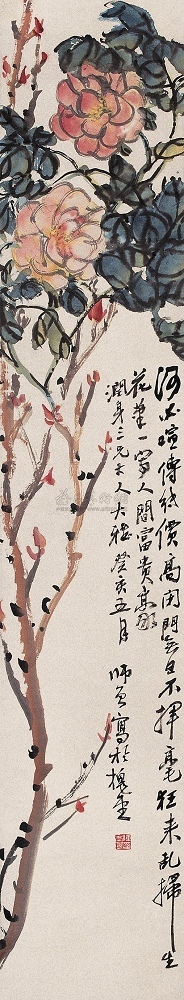 何必喧傳紙價高閉門無日不揮毫狂來亂掃生
花筆一寫人間富貴豪
潤身三兄大人大雅癸亥五月
師子寫於槐堂